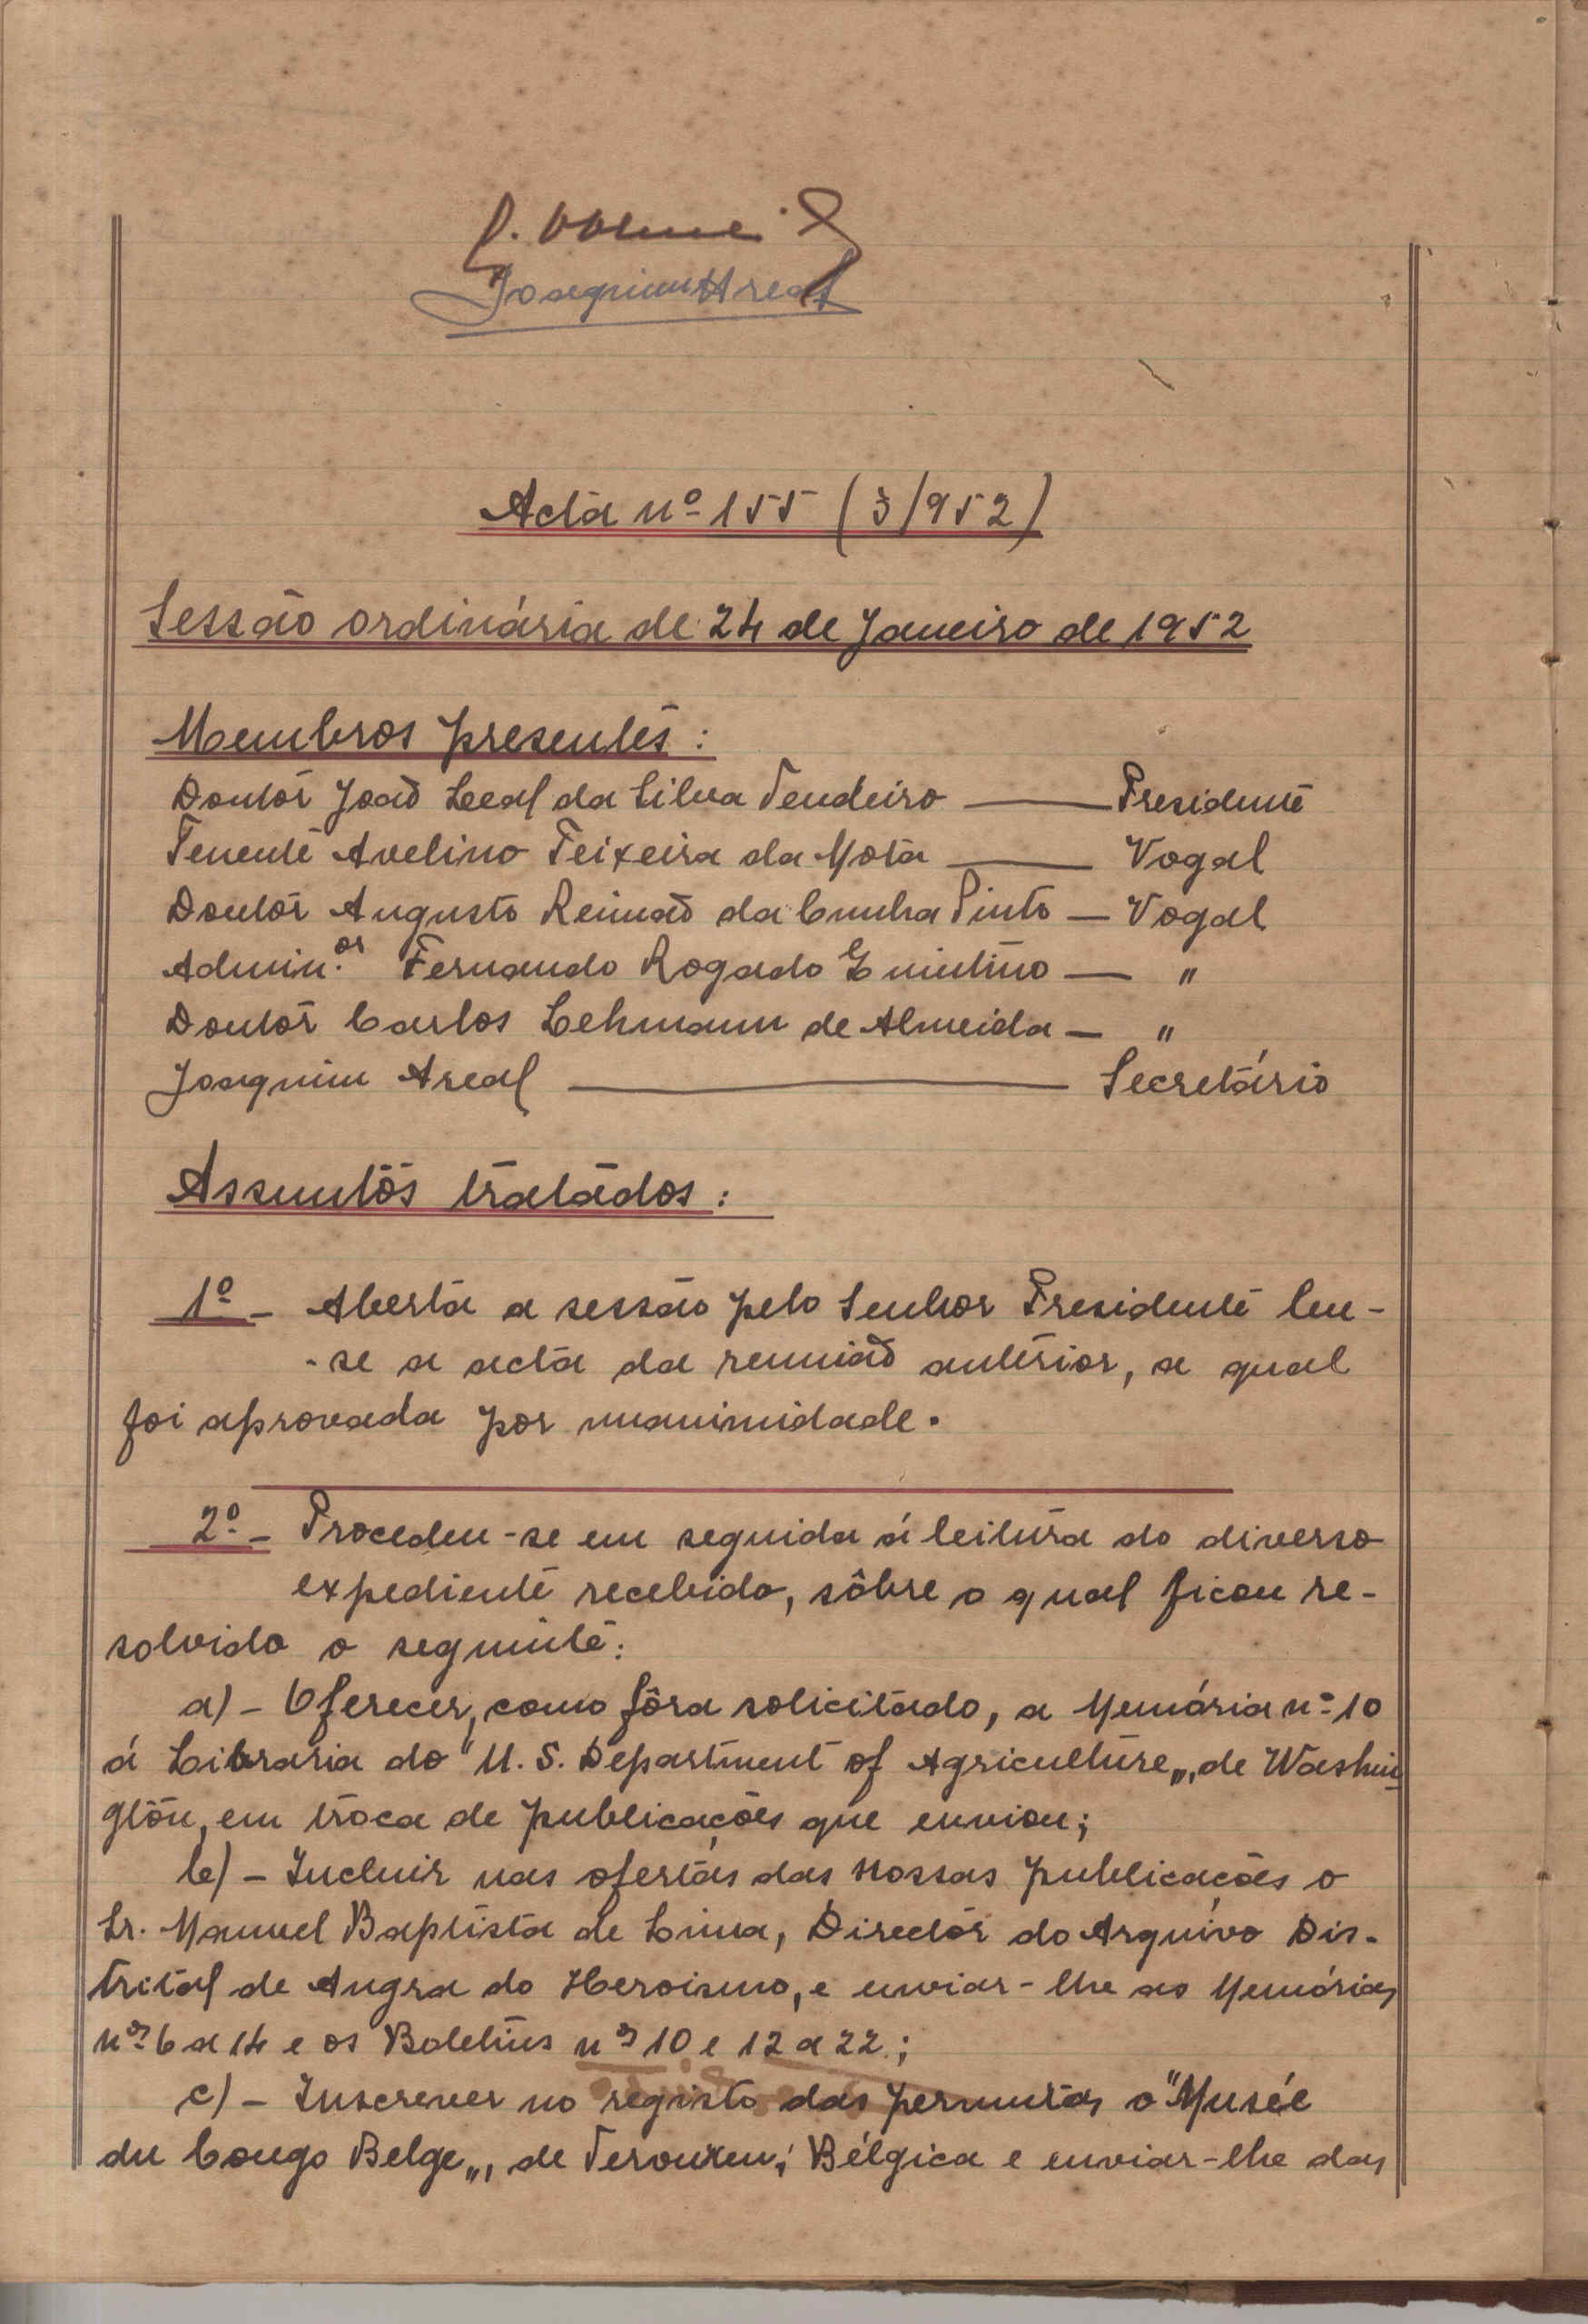 Joaquim Areal
Acta nº 155 (3/952)
Sessão ordinária de 24 de Janeiro de 1952
Membros presentes:
Doutor João Leal da Silva Tendeiro — Presidente
Tenente Avelino Teixeira da Mota — Vogal
Doutor Augusto Reimão da Cunha Pinto — Vogal
Admin.or Fernando Rogado Quintino — "
Doutor Carlos Lehmann de Almeida — "
Joaquim Areal — Secretário
Assuntos tratados:
1º - Aberta a sessão pelo Senhor Presidente leu-
-se a acta da reunião anterior, a qual
foi aprovada por unanimidade.
2º - Procedeu-se em seguida á leitura do diverso
expediente recebido, sôbre o qual ficou re-
solvido o seguinte:
a) - Oferecer, como fôra solicitado, a Memória nº 10
á Libraria do "U. S. Department of Agriculture„, de Washin
gton, em troca de publicações que enviou;
b) - Incluir nas ofertas das nossas publicações o
Sr. Manuel Baptista de Lima, Director do Arquivo Dis-
trital de Angra do Heroismo, e enviar-lhe as Memórias
nºs 6 a 14 e os Boletins nºs 10 e 12 a 22.;
c) - Inscrever no registo das permutas o "Musée
du Congo Belge„, de Tervuren, Bélgica e enviar-lhe das